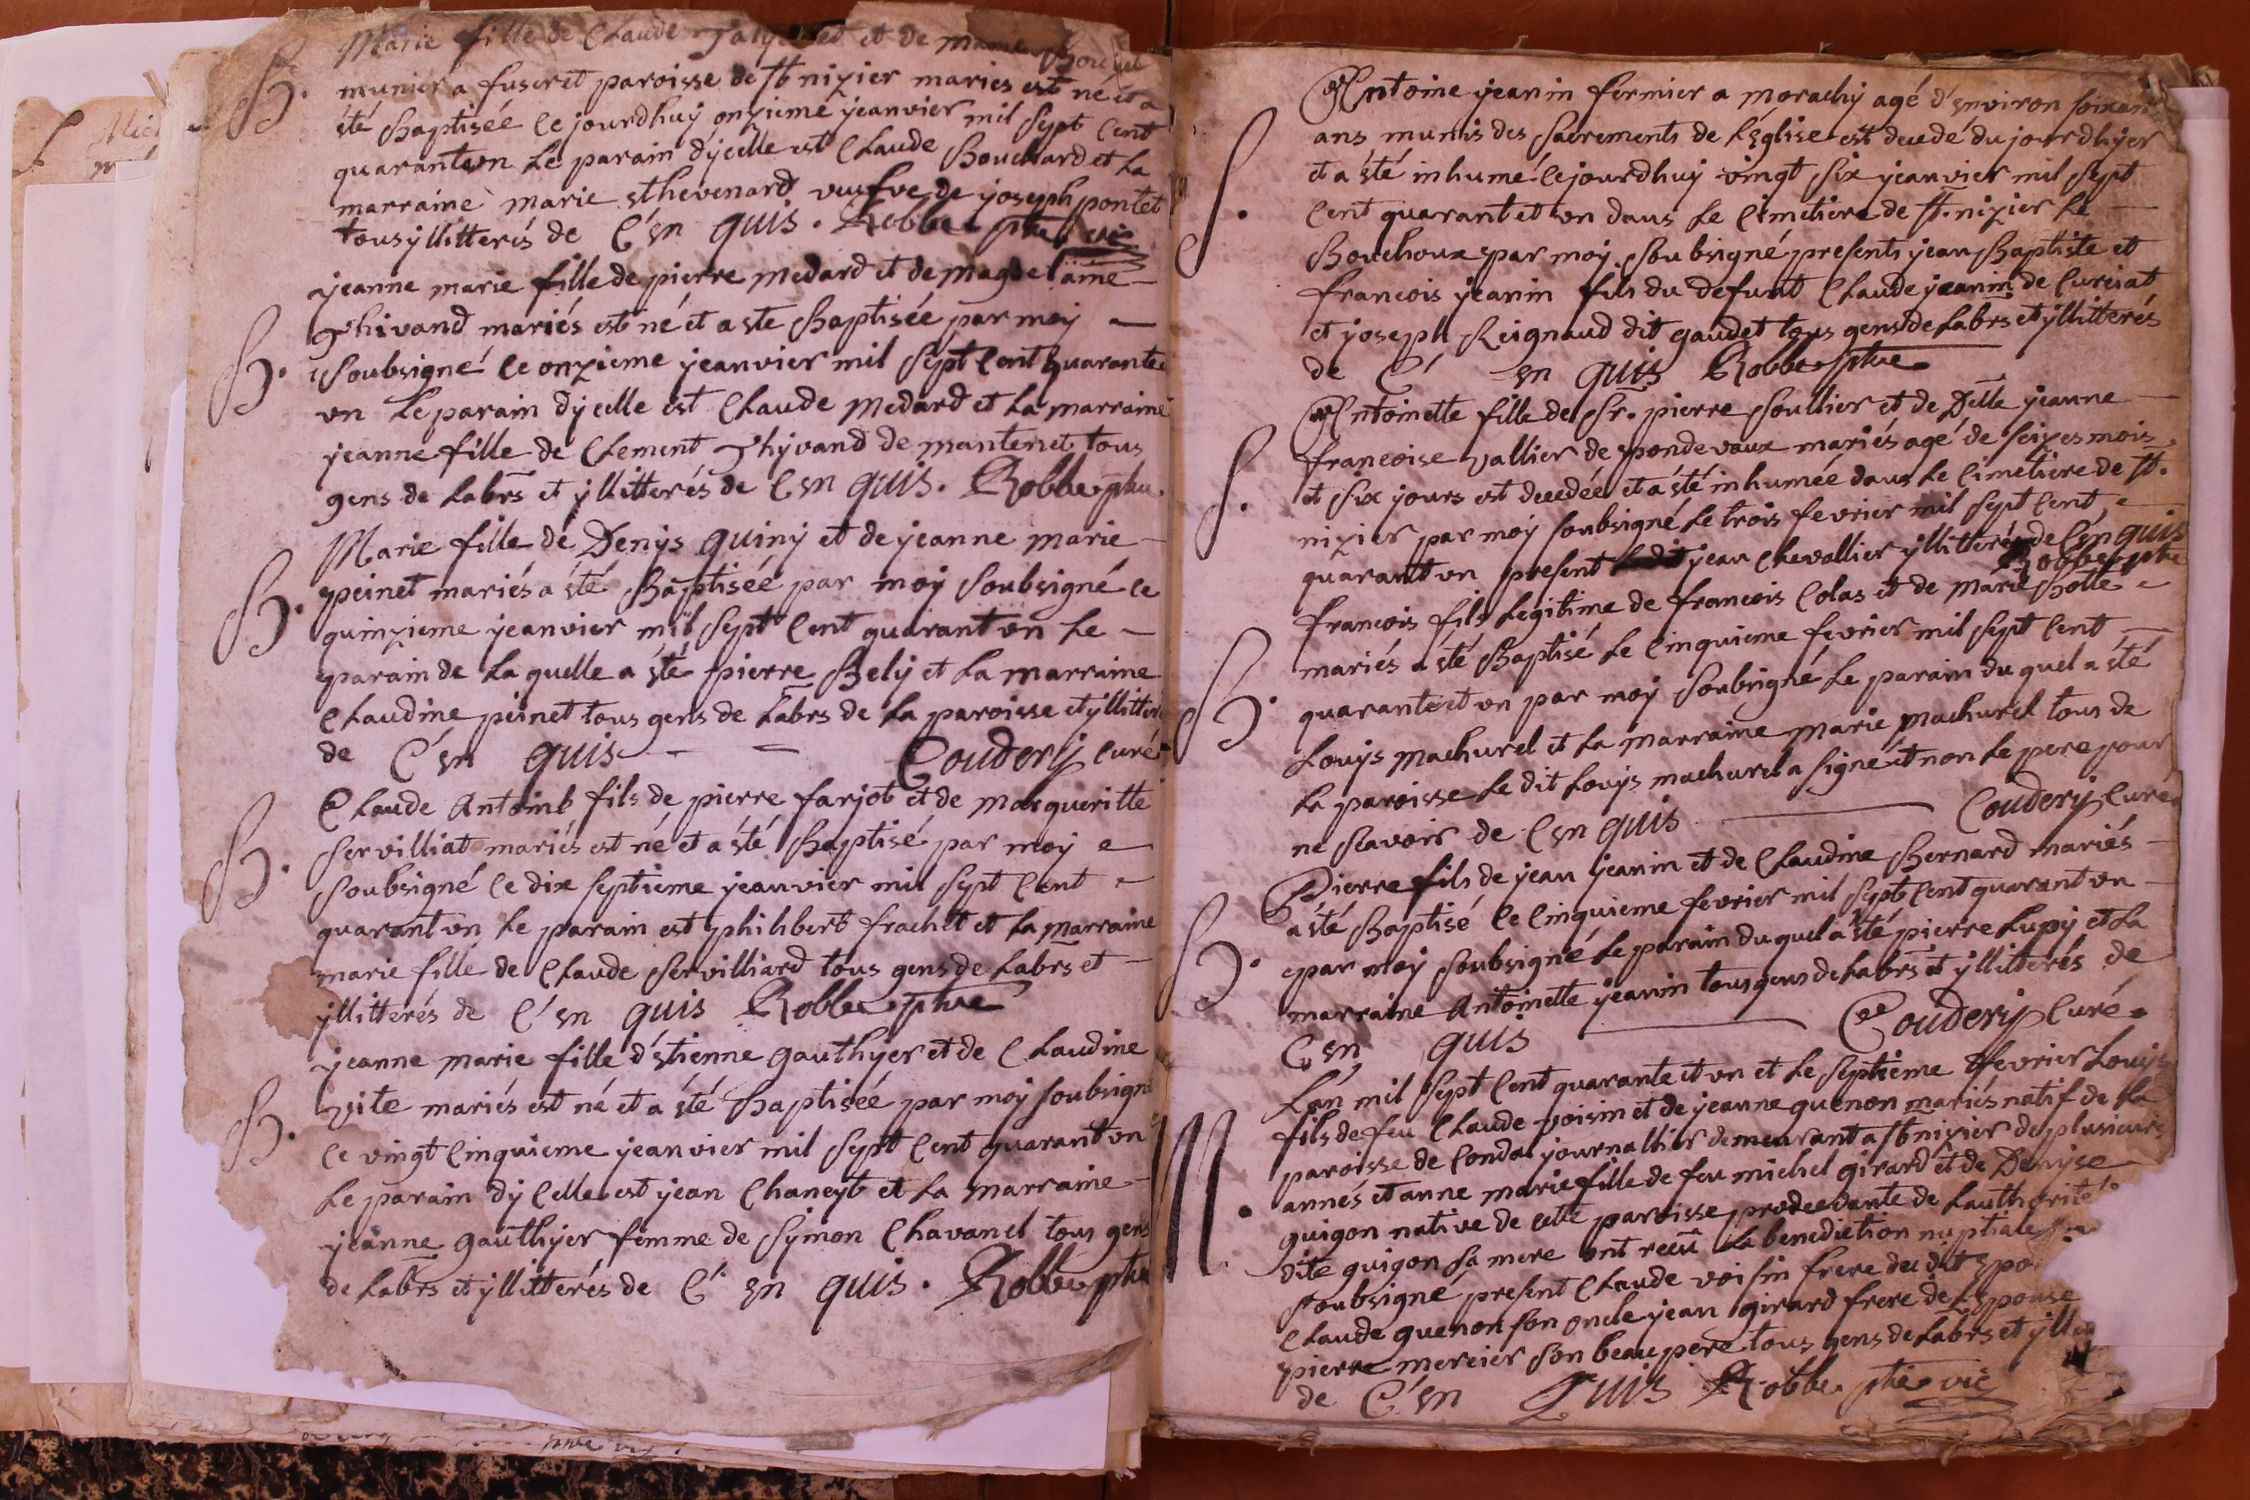 B.
Marie fille de Claude et de marie
munier a fuseret paroisse de St nizier mariés est né et a
êté Baptisée ce jourdhuy onzieme jeanvier mil sept cent
quarantun Le parain dÿcelle est Claude Bouchard et La
marraine marie sthevenard veufve de joseph pontet
tous yllitterés de C'En quis. Robbe ptre vic
B.
jeanne marie fille de pierre medard et de magdelaine
Thivand mariés est né et a ste Baptisée par moy
Soubsigné ce onzieme jeanvier mil sept cent quarante
un Le parain dycelle est Claude medard et La marraine
jeanne fille de Clement Thyvand de mantenet tous
gens de Labrs et yllitterés de C'En quis. Robbe ptre
B.
Marie fille de Denys quiny et de jeanne marie
peinet mariés a êté Baptisée par moy Soubsigné ce
quinzieme jeanvier mil sept cent quarantun Le
parain de Laquelle a êté pierre Bely et La marraine
Claudine peinet tous gens de Labrs de La paroisse et yllitter
de C'En quis Coudery Curé
B.
Claude Antoine fils de pierre farjot et de margueritte
Servilliat mariés est né et a êté Baptisé par moy
Soubsigné ce dix septieme jeanvier mil sept cent
quarantun Le parain est philibert frachet et La marraine
marie fille de Claude Servilliard tous gens de Labrs et
yllitterés de C'En quis Robbe ptre
B.
jeanne marie fille d'étienne gauthyer et de Claudine
vite mariés est né et a êté Baptisée par moy soubsigné
ce vingt cinquieme jeanvier mil sept cent quarantun
Le parain dycelle est jean Chaneyt et La marraine
jeanne gauthyer femme de Symon Chavanel tous gens
de Labrs et yllitterés de C'En quis. Robbe ptre
S.
Antoine jeanin fermier a morachy agé d'environ soixan
ans munis des Sacrements de L'Eglise est decedé du jourdhyer
et a êté inhumé ce jourdhuy vingt six jeanvier mil sept
cent quarantet un dans Le Cimetiere de St. nizier Le
Bouchoux par moy soubsigné presents jean Baptiste et
francois jeanin fils du defunt Claude jeanin de Curciat
et joseph Reignaud dit gaudet tous gens de Labrs et yllitterés
de C'En quis Robbe ptre
S.
Antoinette fille de Sr. pierre Soullier et de Delle jeanne
francoise vallier de pondevaux mariés agé de seizes mois
et six jours est decedée et a êté inhumée dans Le Cimetiere de St.
nizier par moy soubsigné Le trois fevrier mil sept cent
quarantun present jean Chevallier yllitterés de C'En quis
Robbe ptre
B.
francois fils Legitime de francois Colas et de Marie Bolle
mariés a êté Baptisé Le Cinquieme fevrier mil sept cent
quarantet un par moy soubsigné Le parain duquel a êté
Louys machurel et La marraine marie machurel tous de
La paroisse Le dit Louys machurel a signé et non Le pere pour
ne scavoir de C'En quis Coudery Curé
B.
Pierre fils de jean jeanin et de Claudine Bernard mariés
a êté Baptisé ce Cinquieme fevrier mil sept cent quarantun
par moy soubsigné Le parain duquel a êté pierre Lupy et La
marraine Antoinette jeanin tous gens de Labrs et yllitterés de
C'En quis Coudery Curé
M.
L'an mil sept cent quarante et un et Le septieme fevrier Louys
fils de feu Claude voisin et de jeanne quenon mariés natif de La
paroisse de Condal journallier demeurant a St nizier de plusieurs
annés et anne marie fille de feu michel girard et de Denyse
guigon native de cette paroisse procedante de L'authorité
dite guigon sa mere ont receu La benediction nuptiale
soubsigné present Claude voisin frere du dit Epo
Claude quenon son oncle jean girard frere de L'Epouse
pierre mercier son beau pere tous gens de Labrs et yll
de C'En quis Robbe ptre vic